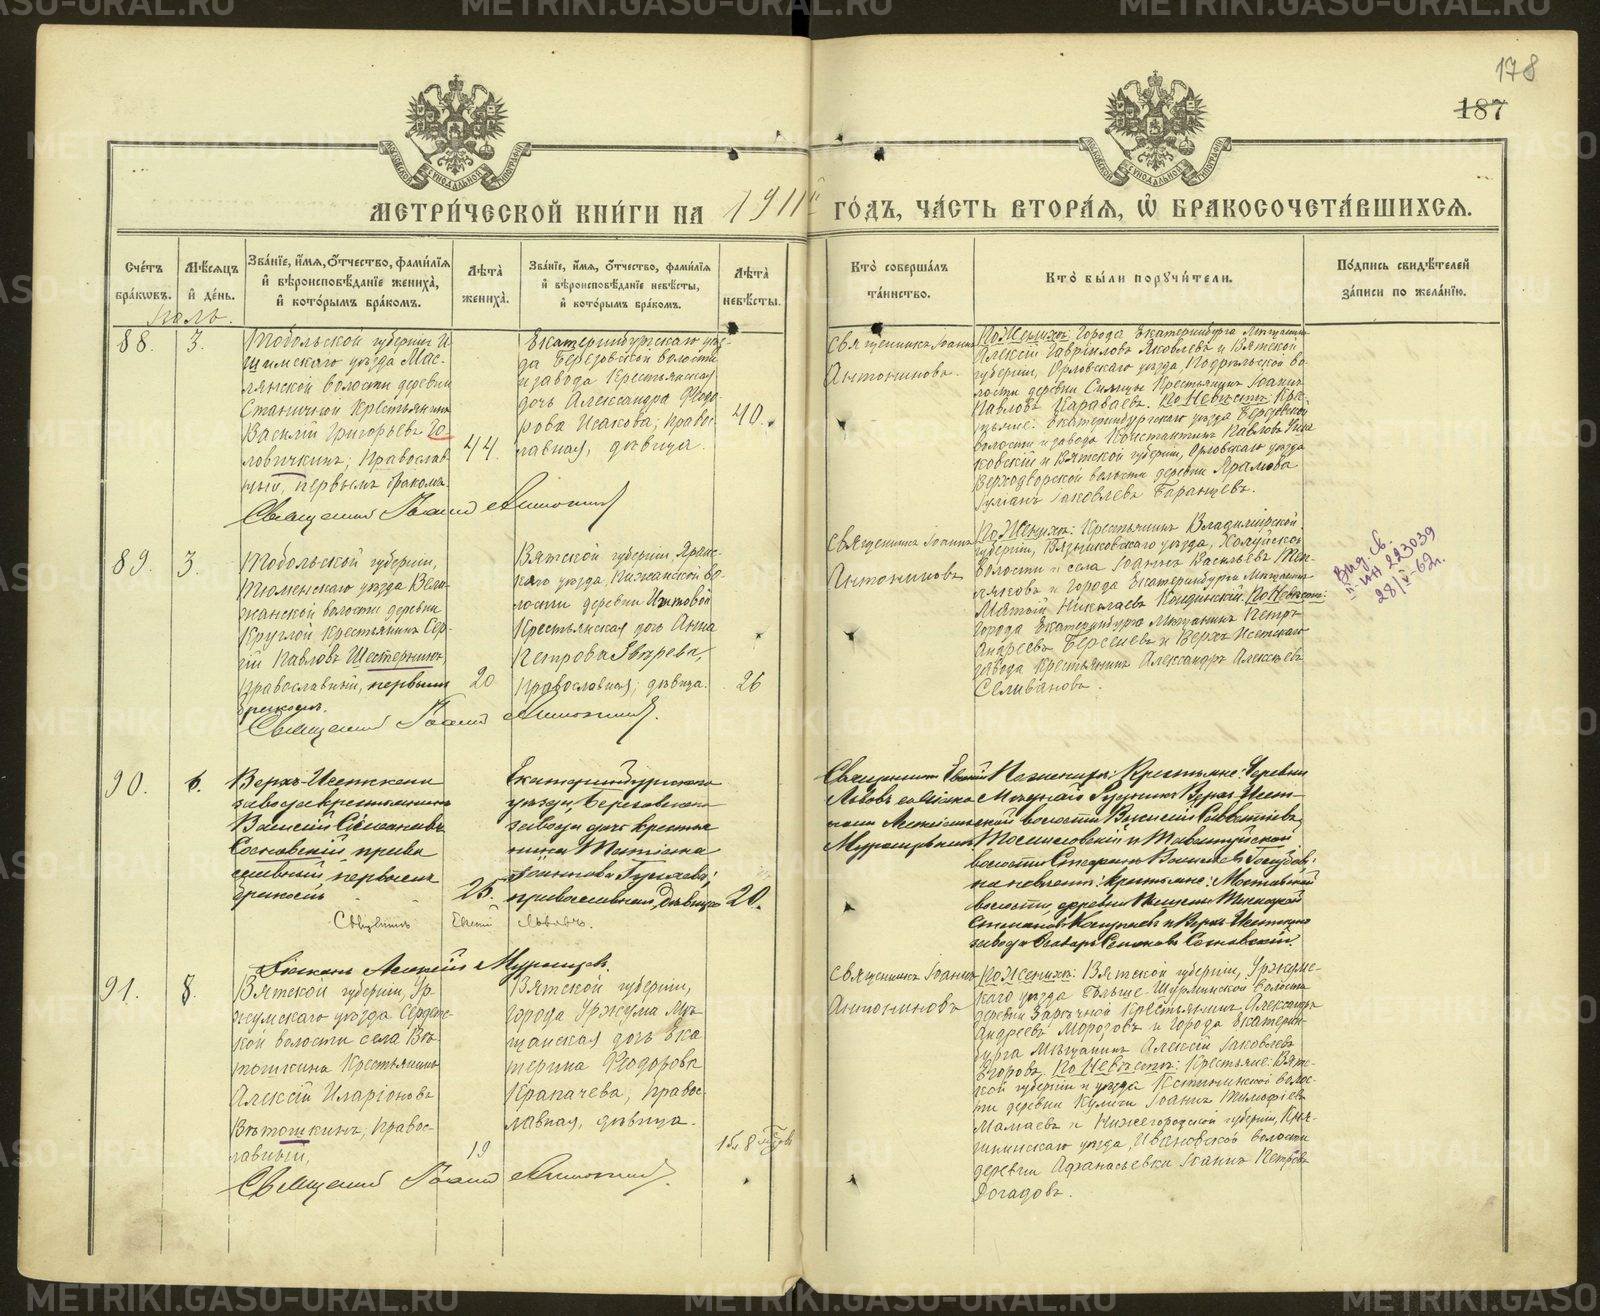 METRIKI.GASO-URAL.RU
178
187
МЕТРИ́ЧЕСКОЙ КНИ́ГИ НА 1911й ГО́ДЪ, ЧА́СТЬ ВТОРА́Я, Ѿ БРАКОСОЧЕТА́ВШИХСЯ.
Сче́тъ бра́ковъ.
Мѣ́сяцъ и де́нь.
Зва́нїе, и́мя, о́тчество, фами́лїя и вѣроисповѣ́данїе жениха́, и кото́рымъ бра́комъ.
Лѣта̀ жениха̀.
Зва́нїе, и́мя, о́тчество, фами́лїя и вѣроисповѣ́данїе невѣ́сты, и кото́рымъ бра́комъ.
Лѣта̀ невѣ́сты.
Кто̀ соверша́лъ та́инство.
Кто̀ бы́ли поручи́тели.
По́дпись свидѣ́телей за́писи по жела́нїю.
Іюль.
88.
3.
Тобольской губерніи И
шимскаго уѣзда Мас-
лянской волости деревни
Станичной Крестьянинъ
Василій Григорьевъ Го
ловичкинъ; Православ
ный, первымъ бракомъ.
44.
Екатеринбургскаго уѣз-
да Березовской волости
и завода Крестьянская
дочь Александра Ѳедо
рова Исакова; Правос-
лавная, дѣвица.
40.
Священникъ Іоаннъ
Антониновъ.
По Женихѣ: Города Екатеринбурга Мѣщанинъ
Алексій Гавріиловъ Яковлевъ и Вятской
губерніи, Орловскаго уѣзда Подрѣльской во
лости деревни Синицы Крестьянинъ Іоаннъ
Павловъ Караваевъ. По Невѣстѣ: Кре
стьяне: Екатеринбургскаго уѣзда Березовской
волости и завода Константинъ Павловъ
ковскій и Вятской губерніи, Орловскаго уѣзда
Верходворской волости деревни Храмова
Іуліанъ Іаковлевъ Баранцевъ.
Священникъ Іоаннъ Антониновъ
89.
3.
Тобольской губерніи,
Тюменскаго уѣзда Вели
жанской волости деревни
Круглой Крестьянинъ Сер-
гій Павловъ Шестернинъ,
православный, первымъ
бракомъ.
20
Вятской губерніи Яранс-
каго уѣзда, Пижанской во-
лости деревни
Крестьянская дочь Анна
Петрова Звѣрева,
православная; дѣвица.
26
Священникъ Іоаннъ
Антониновъ
По Женихѣ: Крестьянинъ Владимірской
губерніи, Вязниковскаго уѣзда, Холуйской
волости и села Іоаннъ Васильевъ Теп-
ляковъ и Города Екатеринбурга Мѣщанинъ
Николаевъ Кондинскій. По Невѣстѣ:
Города Екатеринбурга Мѣщанинъ Петръ
Андреевъ Берсеневъ и Верхъ Исетскаго
завода Крестьянинъ Александръ Алексѣевъ
Селивановъ.
Выд. св.
II ИА 223039
28/V-62г.
Священникъ Іоаннъ Антониновъ.
90.
6.
Верхъ-Исетскаго
завода крестьянинъ
Василій
Сосновскій, право
славный, первымъ
бракомъ
25.
Екатеринбургскаго
уѣзда, Березовскаго
завода дочь крестья
нина Татіана
Іоаннова Гуляева;
православная, дѣвица
20.
Священникъ Евгеній
Львовъ съ діако
номъ Алексіемъ
Муромцевымъ.
По женихѣ: Крестьяне: деревни
Верхъ Исет
ской волости Василій Савватіевъ
и Таватуйской
волости Стефанъ
по невѣстѣ: крестьяне: Мостовской
волости, деревни
Верхъ Исетскаго
завода Сосновскій.
Священникъ Евгеній Львовъ.
Діаконъ Алексій Муромцевъ.
91.
8.
Вятской губерніи, Ур-
жумскаго уѣзда Сердеж-
ской волости села Вѣ
тошкина Крестьянинъ
Алексій Иларіоновъ
Вѣтошкинъ, Правос-
лавный,
19
Вятской губерніи,
города Уржума Мѣ
щанская дочь Ека
терина Ѳеодорова
Крапачева; правос-
лавная, дѣвица.
15 л 8 мѣсяцевъ
Священникъ Іоаннъ
Антониновъ
По Женихѣ: Вятской губерніи, Уржумс-
каго уѣзда Больше-Шурминской волости
деревни Заречной Крестьянинъ Александръ
Андреевъ Морозовъ и города Екатерин-
бурга Мѣщанинъ Алексій Іаковлевъ
Егоровъ. По Невѣстѣ: Крестьяне: Вят-
ской губерніи и уѣзда Кстининской волос-
ти деревни Кулиги Іоаннъ Тимоѳеевъ
Мамаевъ и Нижегородской губерніи, Кня-
гининскаго уѣзда, Ивановской волости
деревни Аѳанасьевки Іоаннъ Петровъ
Рогадовъ.
Священникъ Іоаннъ Антониновъ.